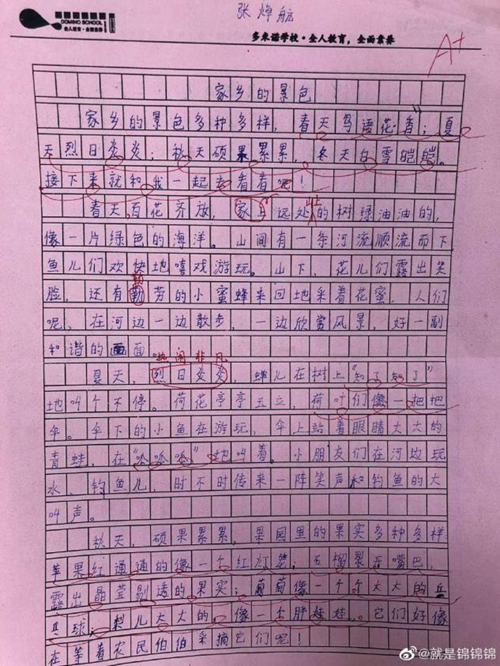 张烨航
DOMINO SCHOOL
全人教育·全面素养
多米诺学校·全人教育，全面素养
A+
家乡的景色
家乡的景色多种多样，春天鸟语花香；夏
天烈日炎炎；秋天硕果累累，冬天白雪皑皑。
接下来就和我一起去看看吧！
春天，百花齐放，家乡远处的树绿油油的，
像一片绿色的海洋。山间有一条河流顺流而下
鱼儿们欢快地嘻戏游玩。山下，花儿们露出笑
脸，还有勤劳的小蜜蜂来回地采着花蜜，人们
呢，在河边一边散步，一边欣赏风景，好一副
和谐的画面
热闹非凡
夏天，烈日炎炎，蝉儿在树上"知了知了"
地叫个不停。荷花亭亭玉立，荷叶们像一把把
伞。伞下的小鱼在游玩，伞上站着眼睛大大的
青蛙，在"呱呱呱"地叫着。小朋友们在河边玩
水、钓鱼儿，时不时传来一阵笑声和钓鱼的大
叫声。
秋天，硕果累累，果园里的果实多种多样
苹果红通通的像一个红灯笼；石榴裂开嘴巴，
露出晶莹剔透的果实；葡萄像一个个大大的乒
乓球；梨儿大大的，像一个胖娃娃。它们好像
在等着农民伯伯采摘它们呢！
@就是锦锦锦